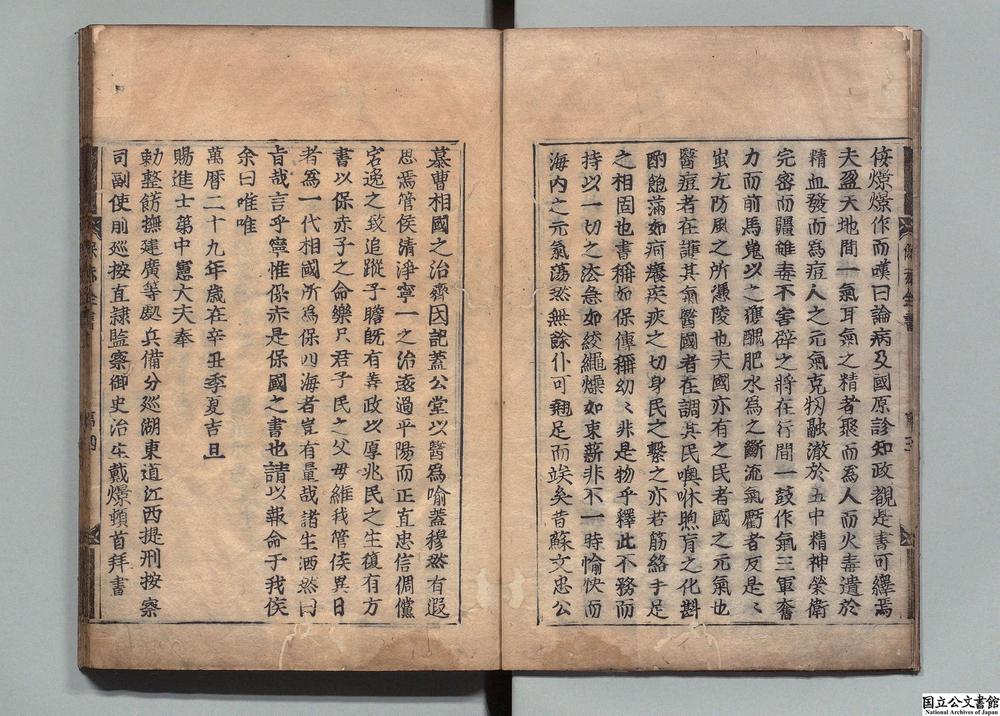 倐爍爍作而嘆曰論病及國原診知政觀是書可繹焉
夫盈天地間一氣耳氣之精者聚而為人而火毒遺於
精血發而為痘人之元氣克牣融澈於五中精神榮衛
完密而疆雖毒不害辟之將在行間一鼓作氣三軍奮
力而前馬鬼以之獲醜肥水為之斷流氣虧者反是〻
蚩尤防風之所憑陵也夫國亦有之民者國之元氣也
醫痘者在護其氣醫國者在調其民噢咻煦育之化斟
酌飽滿如痌瘝疾疢之切身民之繫之亦若筋絡手足
之相固也書稱如保傳稱幼〻非是物乎釋此不務而
持以一切之法急如絞繩燥如束薪非不一時愉快而
海內之元氣蕩然無餘仆可翹足而竢矣昔蘇文忠公
慕曹相國之治齊因記蓋公堂以醫為喻蓋穆然有遐
思焉管侯清淨寧一之治遠過平陽而正直忠信倜儻
宕逸之致追蹤子瞻既有善政以厚兆民之生復有方
書以保赤子之命樂只君子民之父母維我管侯異日
者為一代相國所為保四海者豈有量哉諸生洒然曰
旨哉言乎寧惟保赤是保國之書也請以報命于我侯
余曰唯唯
萬曆二十九年歲在辛丑季夏吉旦
賜進士第中憲大夫奉
勑整飭撫建廣等處兵備分巡湖東道江西提刑按察
司副使前巡按直隸監察御史治生戴燝頓首拜書
保赤全書
第四
国立公文書館
National Archives of Japan